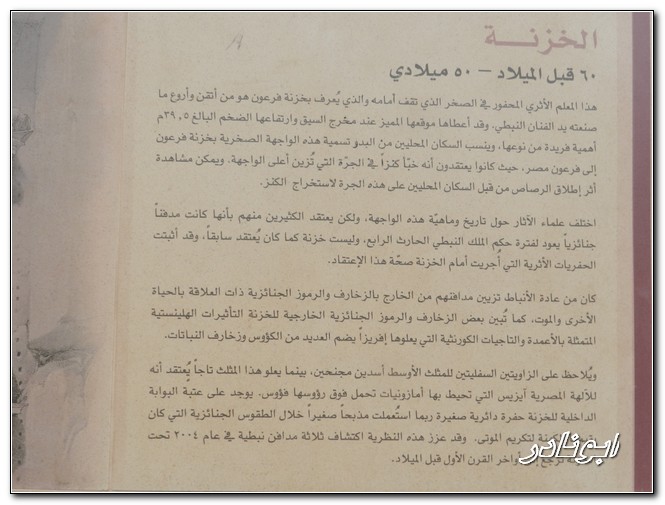 الخزنة
٦٠ قبل الميلاد – ٥٠ ميلادي
هذا المعلم الأثري المحفور في الصخر الذي تقف أمامه والذي يُعرف بخزنة فرعون هو من أتقن وأروع ما
صنعته يد الفنان النبطي. وقد أعطاها موقعها المميز عند مخرج السيق وارتفاعها الضخم البالغ ٣٩,٥م
أهمية فريدة من نوعها، وينسب السكان المحليين من البدو تسمية هذه الواجهة الصخرية بخزنة فرعون
إلى فرعون مصر، حيث كانوا يعتقدون أنه خبّأ كنزاً في الجرّة التي تُزين أعلى الواجهة. ويمكن مشاهدة
أثر إطلاق الرصاص من قبل السكان المحليين على هذه الجرة لاستخراج الكنز.
اختلف علماء الآثار حول تاريخ وماهيّة هذه الواجهة، ولكن يعتقد الكثيرين منهم بأنها كانت مدفناً
جنائزياً يعود لفترة حكم الملك النبطي الحارث الرابع، وليست خزنة كما كان يُعتقد سابقاً، وقد أثبتت
الحفريات الأثرية التي أُجريت أمام الخزنة صحّة هذا الإعتقاد.
كان من عادة الأنباط تزيين مدافنهم من الخارج بالزخارف والرموز الجنائزية ذات العلاقة بالحياة
الأخرى والموت، كما تُبين بعض الزخارف والرموز الجنائزية الخارجية للخزنة التأثيرات الهلينستية
المتمثلة بالأعمدة والتاجيات الكورنثية التي يعلوها إفريزاً يضم العديد من الكؤوس وزخارف النباتات.
ويُلاحظ على الزاويتين السفليتين للمثلث الأوسط أسدين مجنحين، بينما يعلو هذا المثلث تاجاً يُعتقد أنه
للآلهة المصرية آيزيس التي تحيط بها أمازونيات تحمل فوق رؤوسها فؤوس. يوجد على عتبة البوابة
الداخلية للخزنة حفرة دائرية صغيرة ربما استُعملت مذبحاً صغيراً خلال الطقوس الجنائزية التي كان
لتكريم الموتى. وقد عزز هذه النظرية اكتشاف ثلاثة مدافن نبطية في عام ٢٠٠٤ تحت
ترجع أواخر القرن الأول قبل الميلاد.
ابو نادر